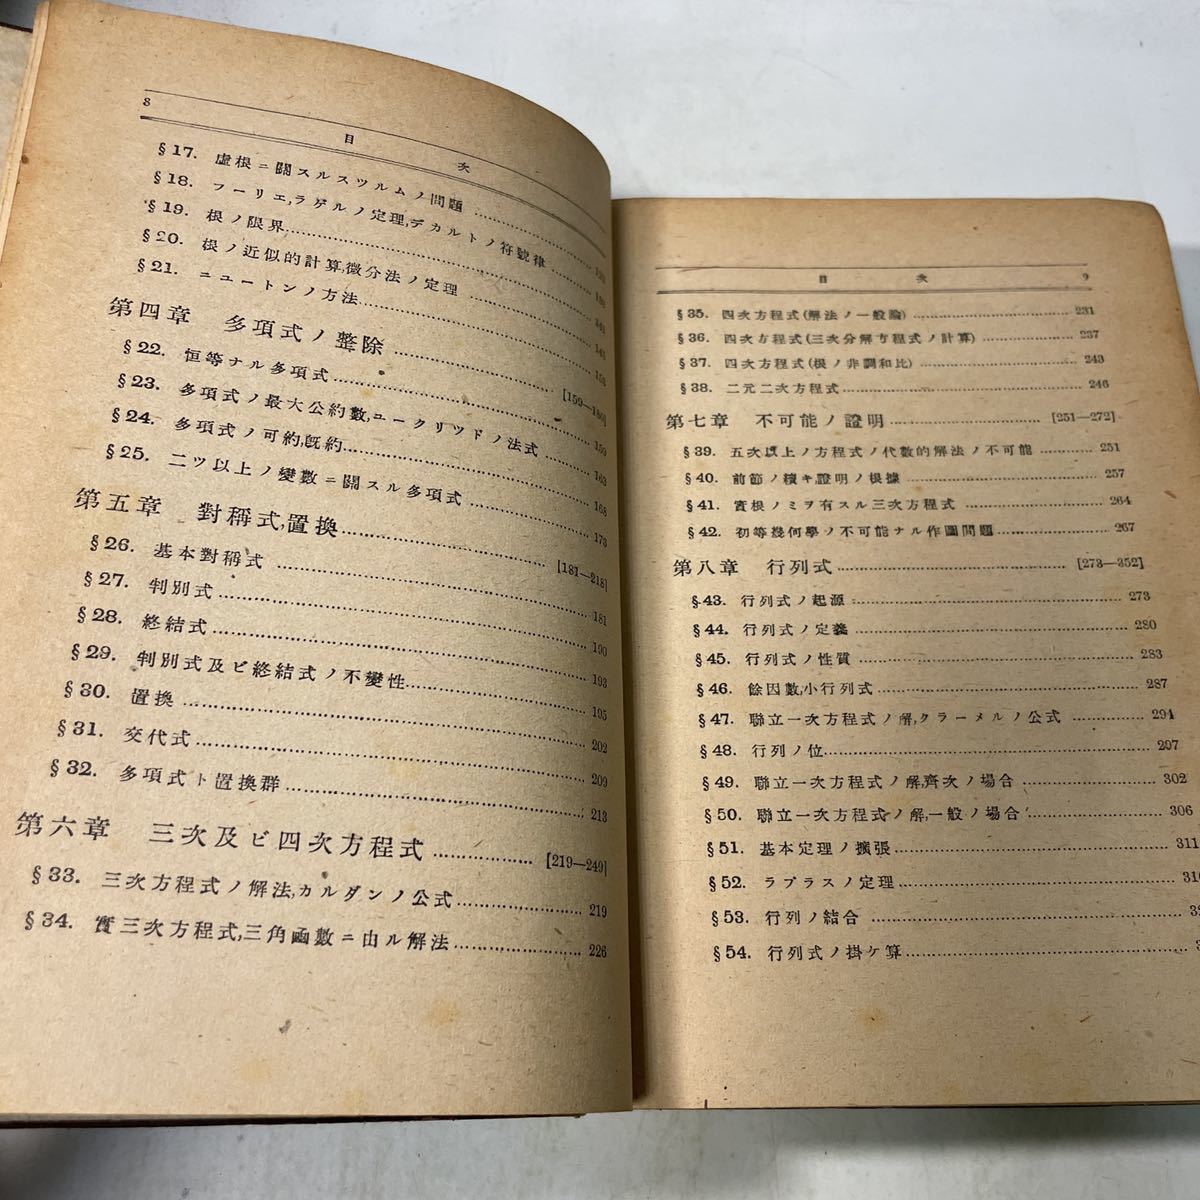 8
目次
§17. 虛根ニ關スルスツルムノ問題
§18. フーリエ,ラゲルノ定理,デカルトノ符號律
§19. 根ノ限界
§20. 根ノ近似的計算,微分法ノ定理
§21. ニュートンノ方法
第四章 多項式ノ整除 [159—180]
§22. 恒等ナル多項式 159
§23. 多項式ノ最大公約數,ユークリツドノ法式
§24. 多項式ノ可約,旣約 168
§25. 二ツ以上ノ變數ニ關スル多項式 173
第五章 對稱式,置換 [181—218]
§26. 基本對稱式 181
§27. 判別式 190
§28. 終結式 193
§29. 判別式及ビ終結式ノ不變性 195
§30. 置換 202
§31. 交代式 209
§32. 多項式ト置換群 213
第六章 三次及ビ四次方程式 [219—249]
§33. 三次方程式ノ解法,カルダンノ公式 219
§34. 實三次方程式,三角函數ニ由ル解法 226
目次 9
§35. 四次方程式(解法ノ一般論) 231
§36. 四次方程式(三次分解方程式ノ計算) 237
§37. 四次方程式(根ノ非調和比) 243
§38. 二元二次方程式 246
第七章 不可能ノ證明 [251—272]
§39. 五次以上ノ方程式ノ代數的解法ノ不可能 251
§40. 前節ノ續キ證明ノ根據 257
§41. 實根ノミヲ有スル三次方程式 264
§42. 初等幾何學ノ不可能ナル作圖問題 267
第八章 行列式 [273—352]
§43. 行列式ノ起源 273
§44. 行列式ノ定義 280
§45. 行列式ノ性質 283
§46. 餘因數,小行列式 287
§47. 聯立一次方程式ノ解,クラーメルノ公式 294
§48. 行列ノ位 297
§49. 聯立一次方程式ノ解,齊次ノ場合 302
§50. 聯立一次方程式ノ解,一般ノ場合 306
§51. 基本定理ノ擴張 311
§52. ラプラスノ定理
§53. 行列ノ結合
§54. 行列式ノ掛ケ算